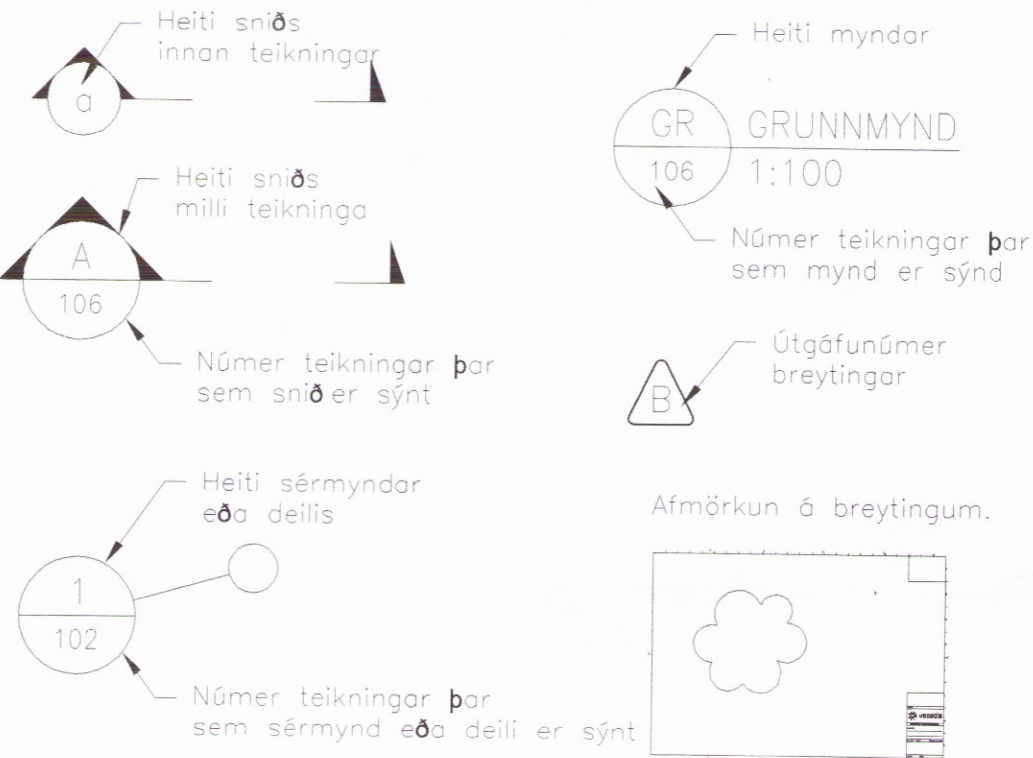 Heiti sniðs
innan teikningar
a
Heiti sniðs
milli teikninga
A
106
Númer teikningar þar
sem snið er sýnt
Heiti sérmyndar
eða deilis
1
102
Númer teikningar þar
sem sérmynd eða deili er sýnt
Heiti myndar
GR GRUNNMYND
106 1:100
Númer teikningar þar
sem mynd er sýnd
Útgáfunúmer
breytingar
B
Afmörkun á breytingum.